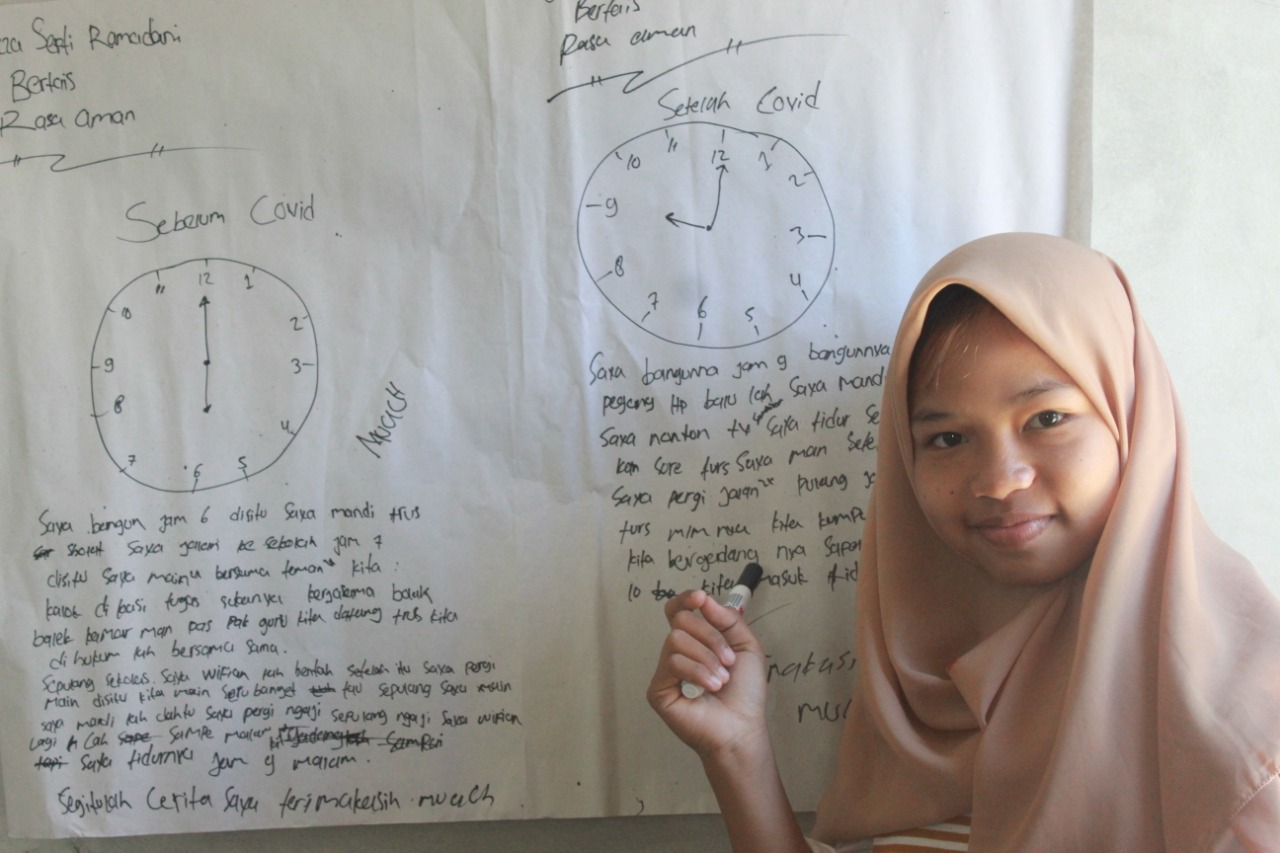 Septi Ramadani
Bertais
Rasa aman
Sebelum Covid
12
1
2
3
4
5
6
7
8
9
10
11
Muach
Saya bangun jam 6 disitu saya mandi trus
sholat saya jalan ke sekolah jam 7
disitu saya main² bersama teman² kita
di kasi tugas sukanya
balek kamar man pas pak guru kita datang trus kita
di hukum lah bersama sama.
Sepulang sekolah saya wifian lah bentah setelah itu saya pergi
main disitu kita main seru banget sepulang saya
saya mandi lah dahtu saya pergi ngaji sepulang ngaji saya wifian
lagi lah sampe malam
saya tidurnya jam 9 malam.
Segitulah Cerita Saya terimakasih muach
Bertais
Rasa aman
Setelah Covid
12
1
2
3
4
5
6
7
8
9
10
11
Saya bangunna jam 9 bangunnya
pegang Hp baru lah saya mand
Saya nonton tv saya tidur se
kan sore turs saya man sete
Saya pergi jalan² pulang ja
turs mlm nya kita kumpe
kita bergedang nya sapa
10 kita masuk tid